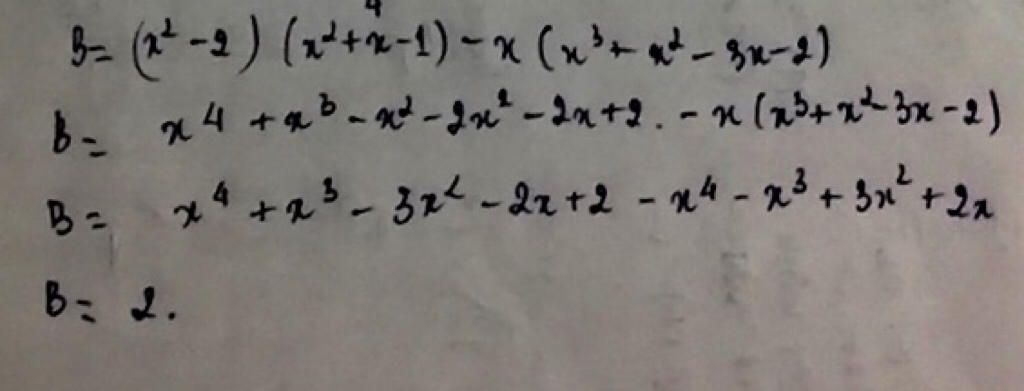 B = (x² - 2) (x² + x - 1) - x (x³ + x² - 3x - 2)
B = x⁴ + x³ - x² - 2x² - 2x + 2. - x (x³ + x² - 3x - 2)
B = x⁴ + x³ - 3x² - 2x + 2 - x⁴ - x³ + 3x² + 2x
B = 2.